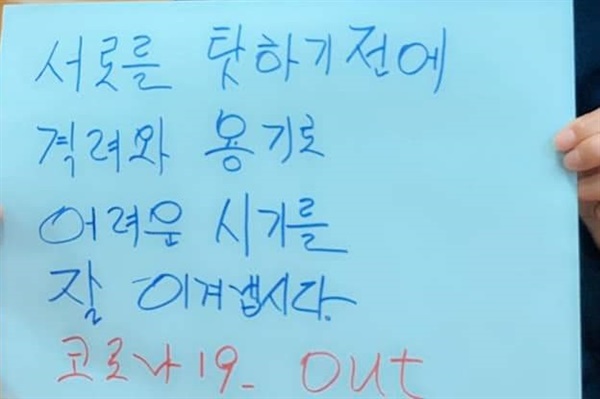 서로를 탓하기전에
격려와 용기로
어려운 시기를
잘 이겨냅시다.
코로나19_ out